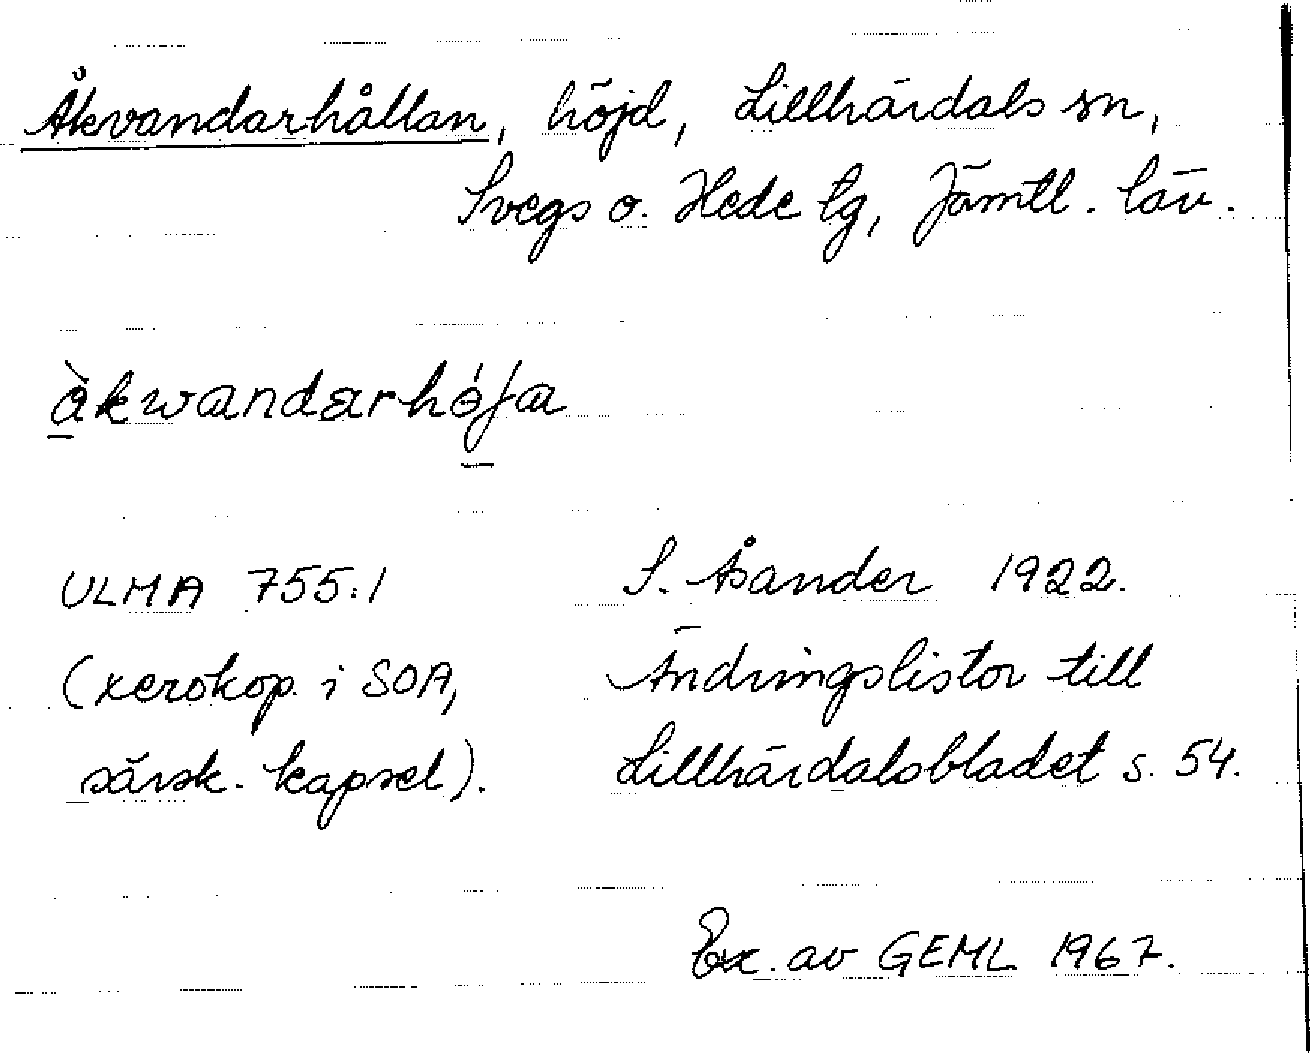 Åkvandarhållan, höjd, Lillhärdals sn,
Svegs o. Hede tg, Jämtl. län.
àkwandarhóʃa
ULMA 755:1 S. Åsander 1922.
(xerokop. i SOA, Ändringslistor till
särsk. kapsel). Lillhärdalsbladet s. 54.
Ex. av GEML 1967.